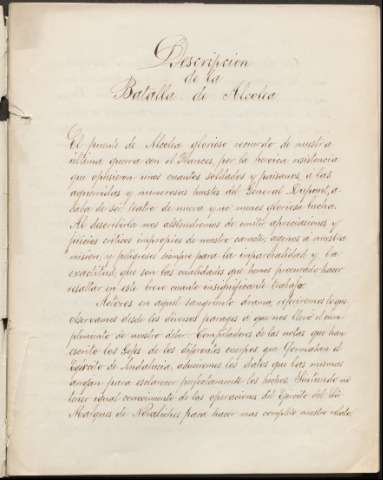 Descripcion
de la
Batalla de Alcolea
El puente de Alcolea glorioso recuerdo de nuestra
última guerra con el Frances, por la heroica resistencia
que opusieron unos cuantos soldados y paisanos, a las
aguerridas y numerosas huestes del General Dupont, a-
caba de ser teatro de nueva y no menos gloriosa lucha.
Al describirla nos abstendremos de emitir apreciaciones y
juicios criticos impropios de nuestro caracter, agenos a nuestra
mision, y para la imparcialidad y la
exactitud, que son las cualidades que hemos procurado hacer
resaltar en este breve cuanto insignificante trabajo.
Actores en aquel sangriento drama, referiremos lo que
observamos desde los diversos parages a que nos llevó el cum-
plimiento de nuestro deber. Compiladores de las notas que han
escrito los Gefes de los diferentes cuerpos que formaban el
Egército de Andalucia, aduciremos los datos que las mismas
arrojan para esclarecer perfectamente los hechos. Sintiendo no
tener igual conocimiento de las operaciones del Egército del
Marques de Novaliches para hacer mas completo nuestro relato,